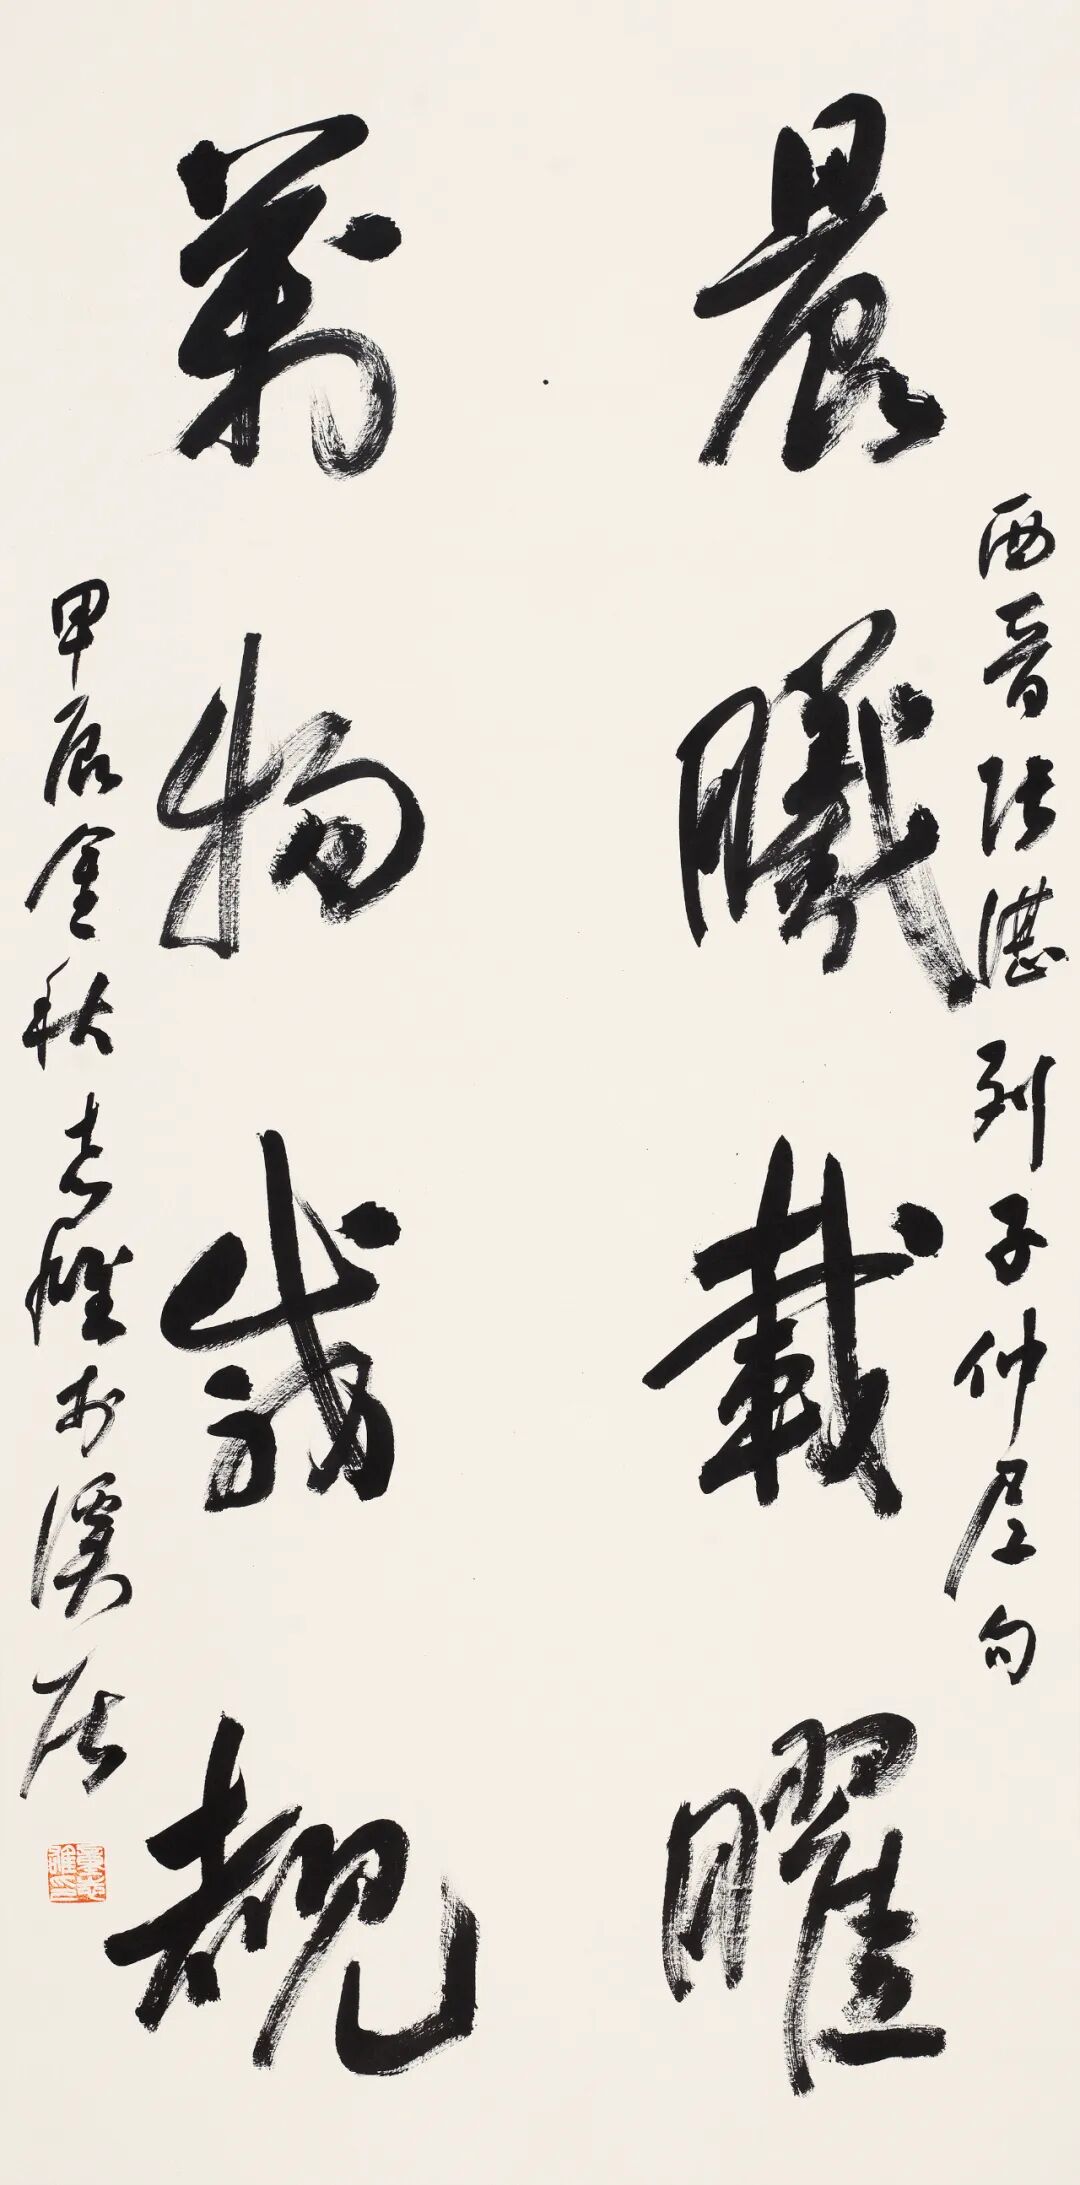 西晉張湛列子仲尼句
晨曦載曜
萬物覩
甲辰金秋志雄於溪居